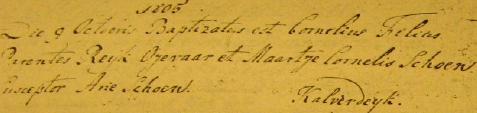 1805
Die 9 Octobris Baptizatus est Cornelius Filius
Parentes Reyk Opervaar et Maartje Cornelis Schoen.
Susceptor Arie Schoen.
Kalverdeyk.